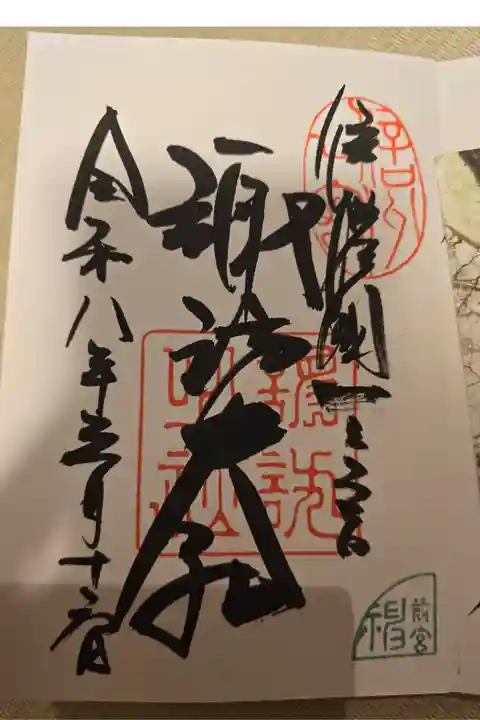 信濃國一之宮
諏訪大社
令和八年三月十六日
前宮